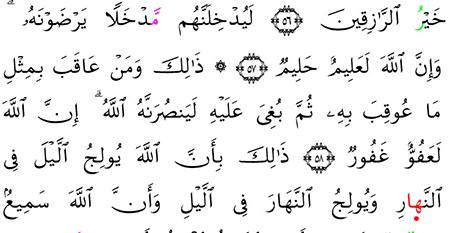 خَيْرُ ٱلرَّٰزِقِينَ ﴿٥٦﴾ لَيُدْخِلَنَّهُم مَّدْخَلًا يَرْضَوْنَهُۥ ۗ
وَإِنَّ ٱللَّهَ لَعَلِيمٌ حَلِيمٌ ﴿٥٧﴾ ۞ ذَٰلِكَ وَمَنْ عَاقَبَ بِمِثْلِ
مَا عُوقِبَ بِهِۦ ثُمَّ بُغِىَ عَلَيْهِ لَيَنصُرَنَّهُ ٱللَّهُ ۗ إِنَّ ٱللَّهَ
لَعَفُوٌّ غَفُورٌ ﴿٥٨﴾ ذَٰلِكَ بِأَنَّ ٱللَّهَ يُولِجُ ٱلَّيْلَ فِى
ٱلنَّهارِ وَيُولِجُ ٱلنَّهَارَ فِى ٱلَّيْلِ وَأَنَّ ٱللَّهَ سَمِيعٌۢ